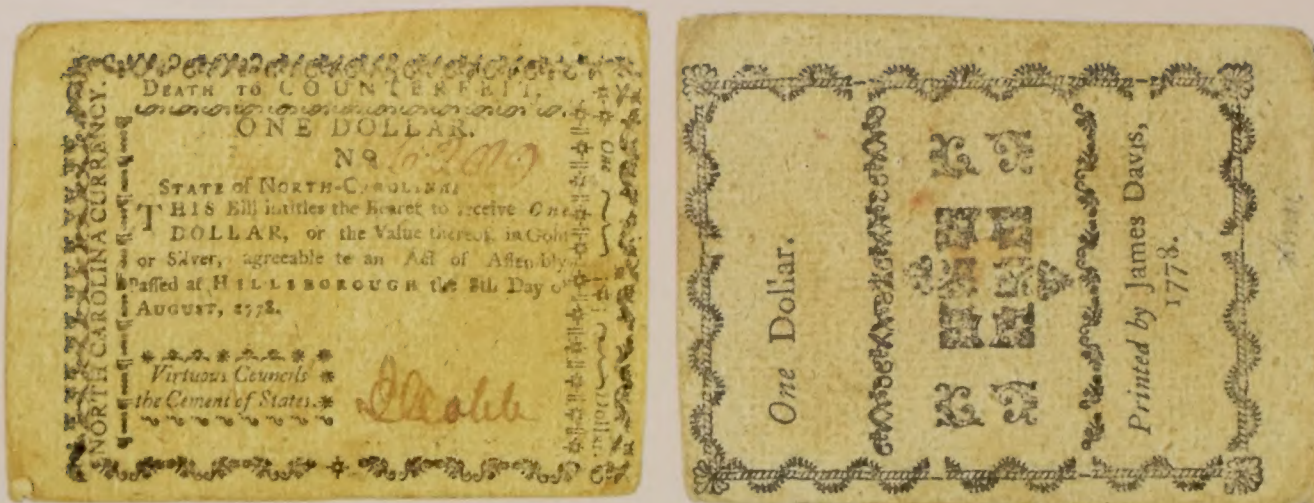 DEATH TO COUNTERFEIT.
ONE DOLLAR.
No
STATE of NORTH-CAROLINA.
THIS Bill intitles the Bearer to receive One
DOLLAR, or the Value thereof, in Gold
or Silver, agreeable to an Act of Assembly
Passed at HILLSBOROUGH the 8th Day of
AUGUST, 1778.
Virtuous Councils
the Cement of States.
NORTH CAROLINA CURRENCY.
One
Dollar.
One Dollar.
Printed by James Davis,
1778.